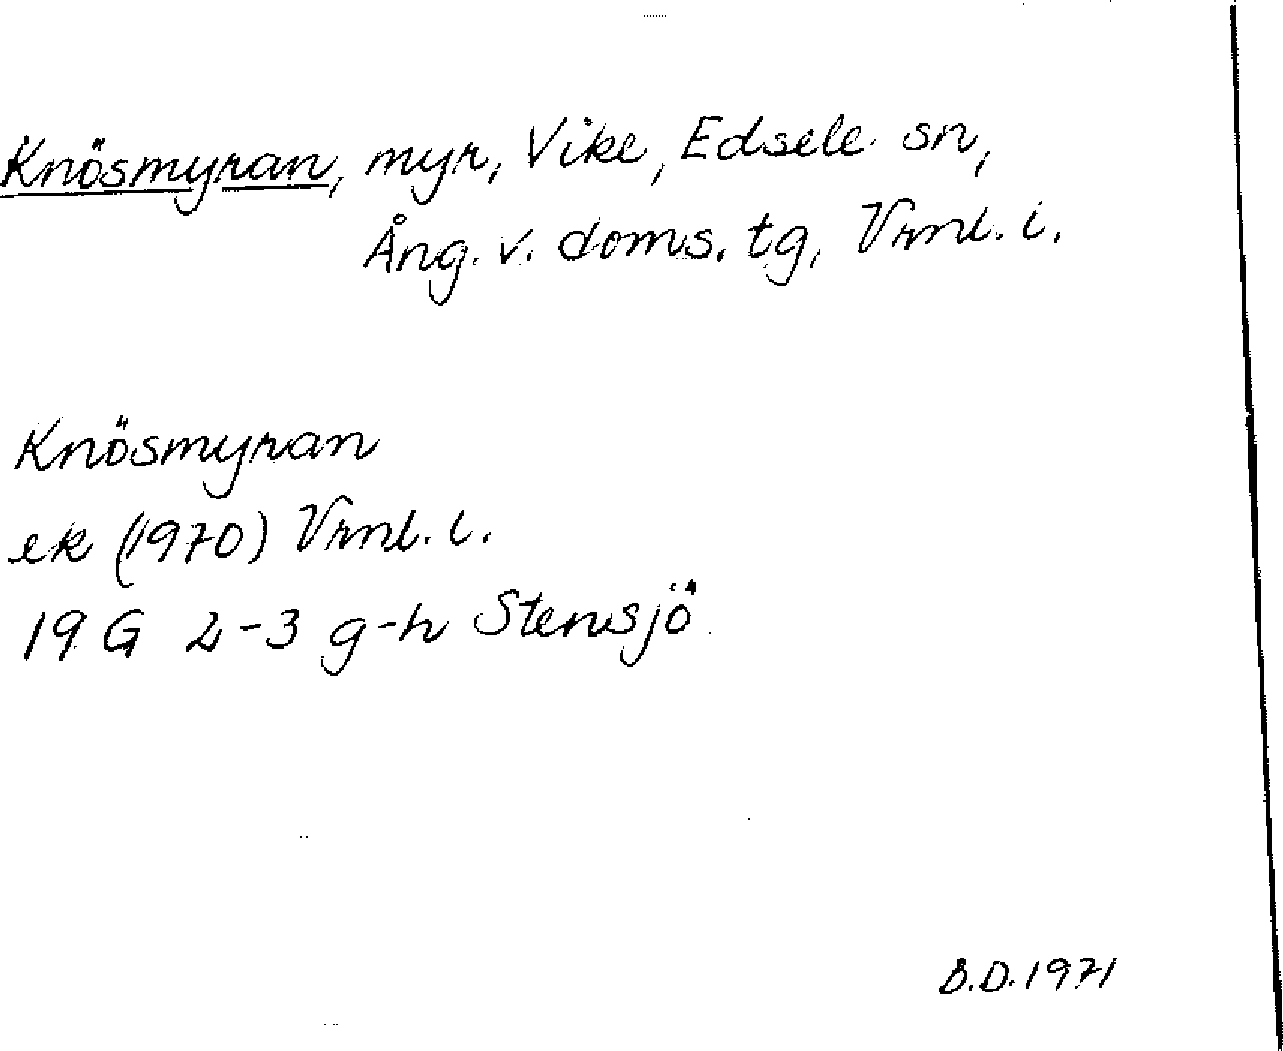 Knösmyran, myr, Vike, Edsele sn,
Ång. v. doms. tg, Vrml. l.
Knösmyran
ek (1970) Vrml. l.
19 G 2-3 g-h Stensjö
B.D. 1971